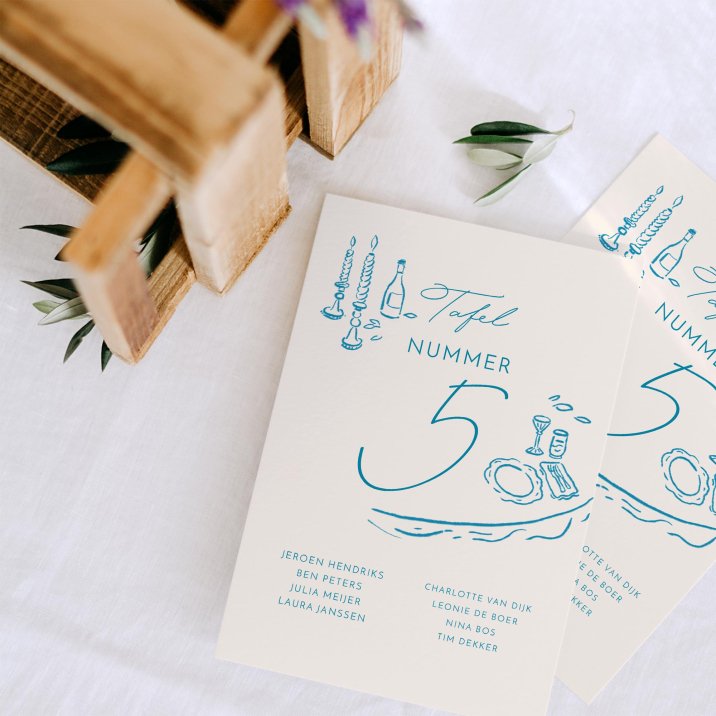 Tafel
NUMMER
5
JEROEN HENDRIKS
BEN PETERS
JULIA MEIJER
LAURA JANSSEN
CHARLOTTE VAN DIJK
LEONIE DE BOER
NINA BOS
TIM DEKKER
NUMMER
5
LOTTE VAN DIJK
IE DE BOER
A BOS
EKKER